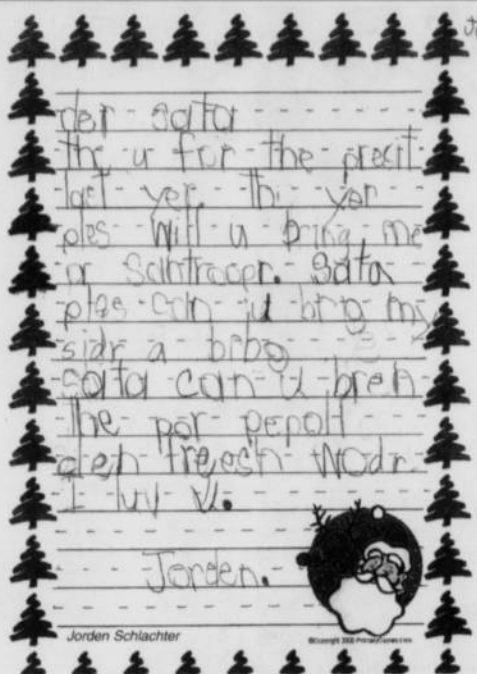 der sata
the u for the presit
last yer. thi yer
ples will u bring me
or Scantrooper. Sata
ples can u brig my
sidr a brbo
sata can u breh
the por pepoll
cleh freesh wodr
I luv U.
Jorden.
Jorden Schlachter
©Copyright 2002-PrimaryGames.com